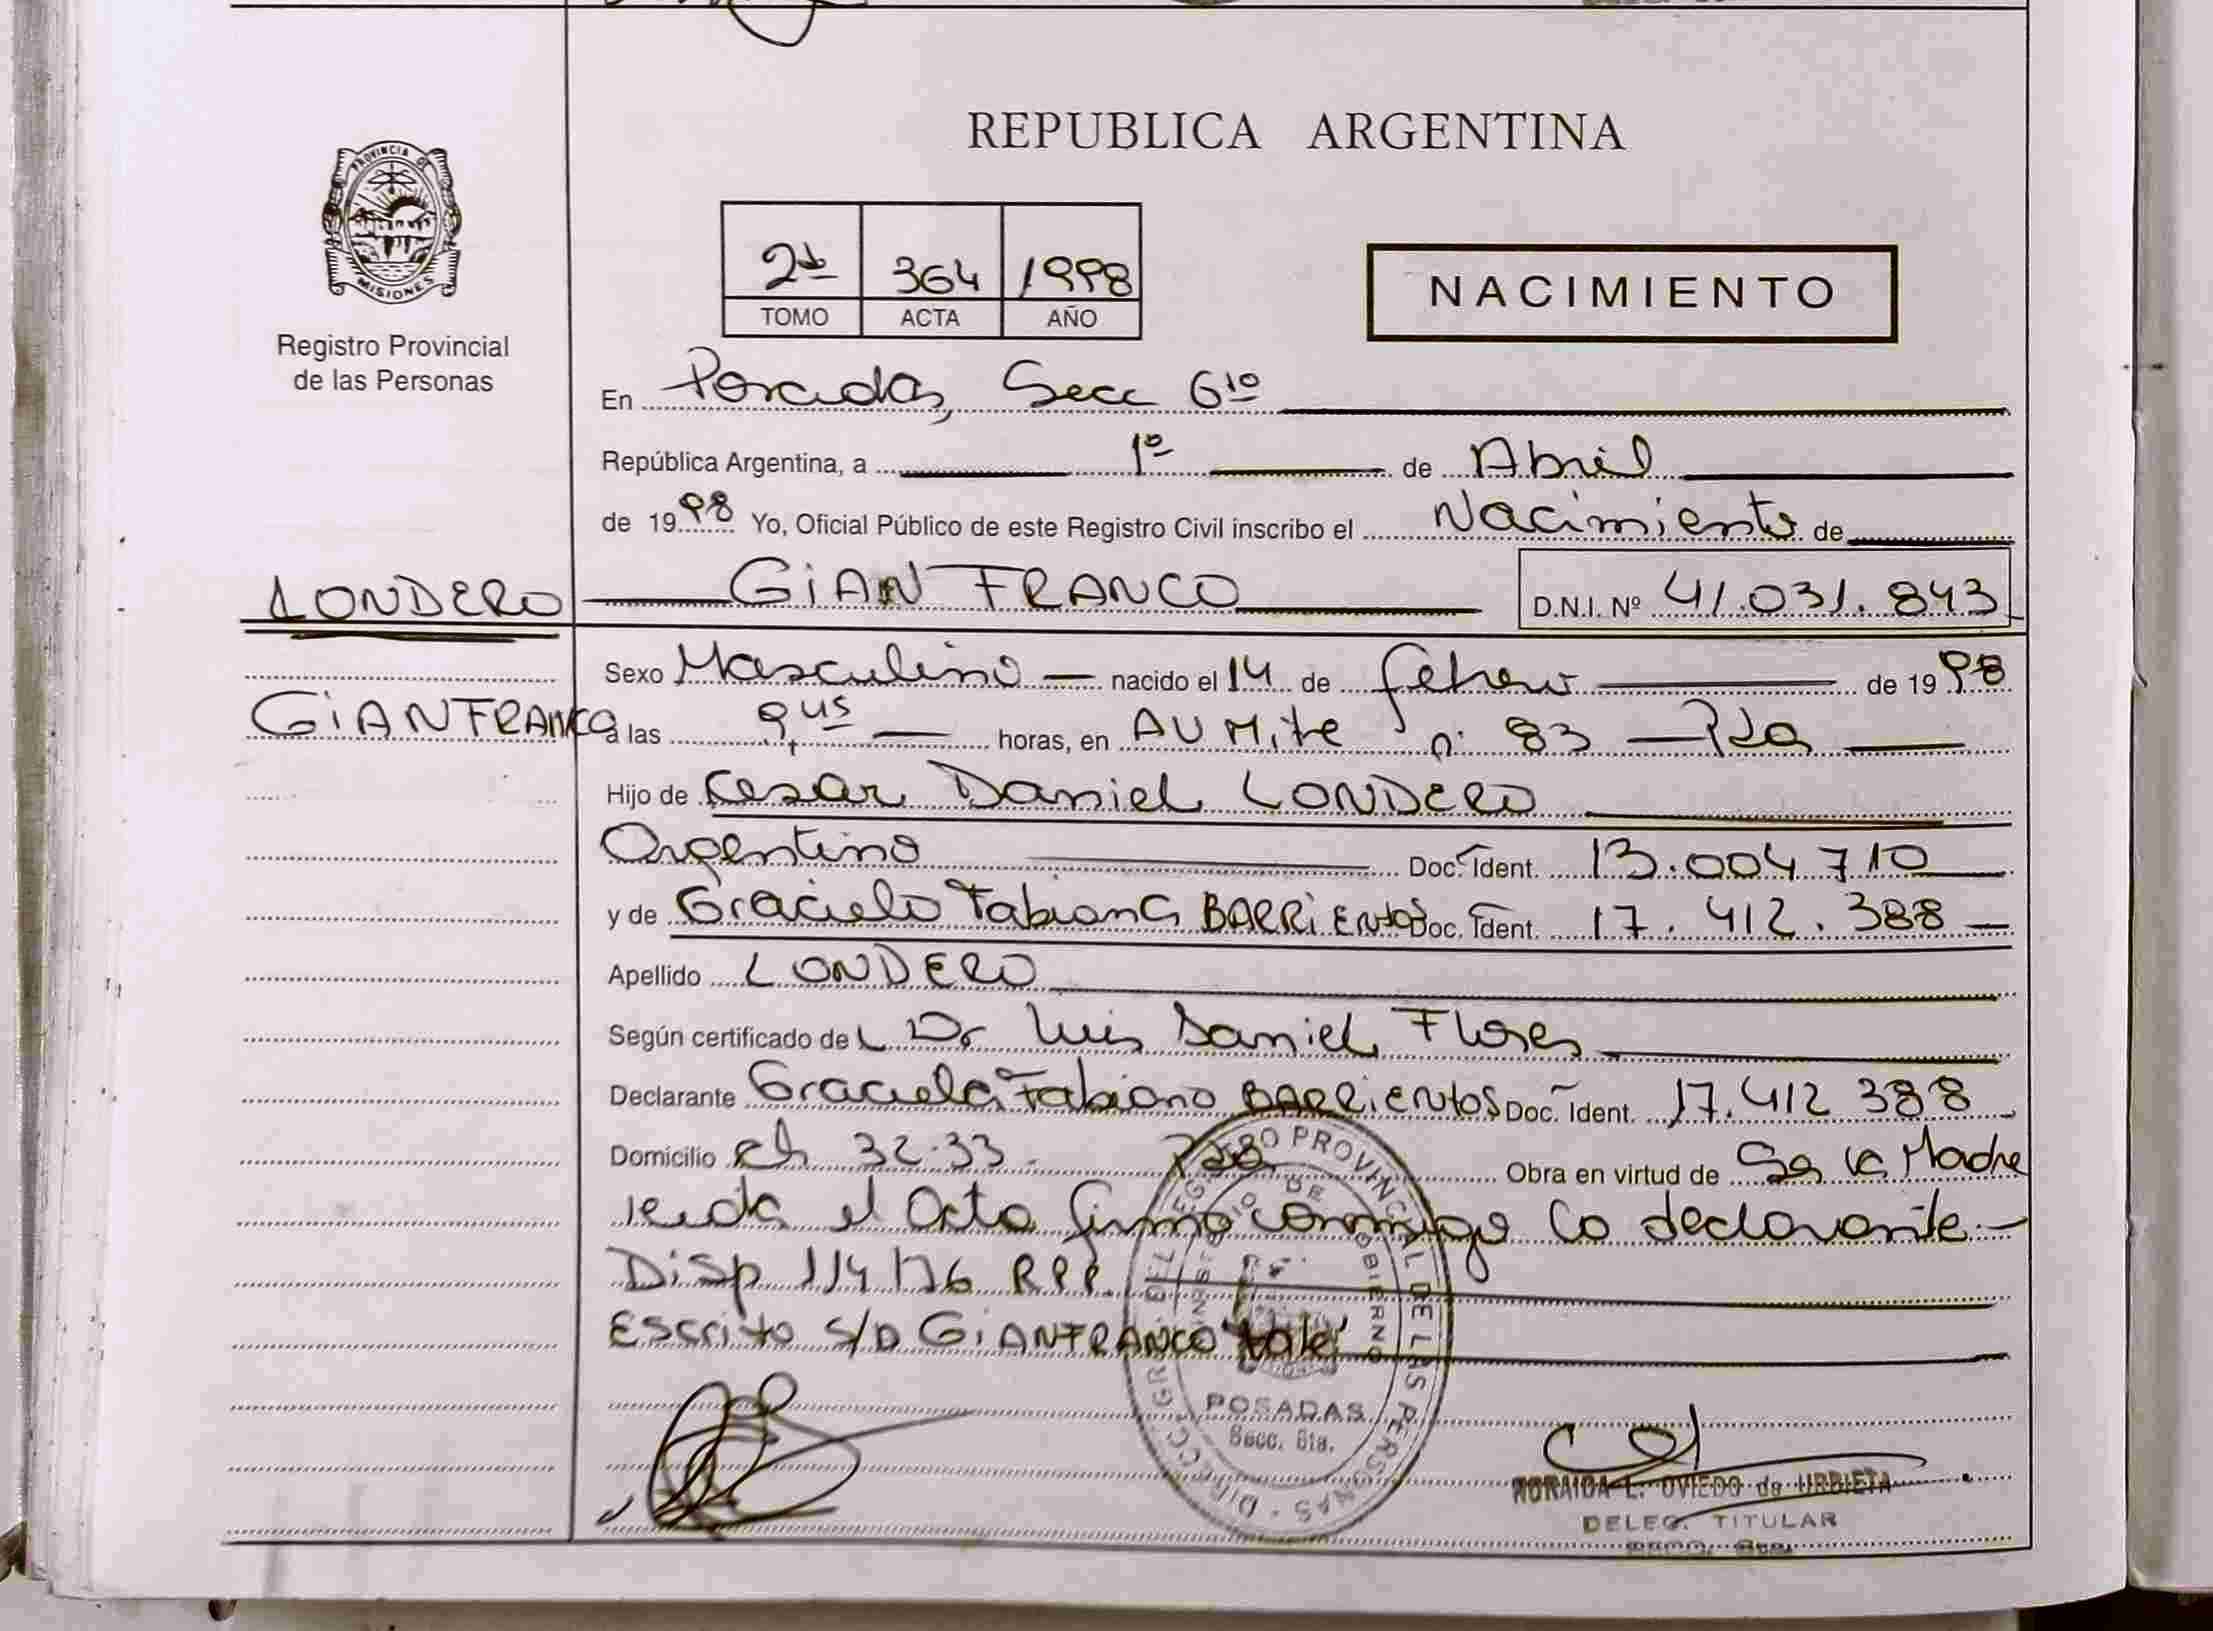 REPUBLICA ARGENTINA
PROVINCIA DE
MISIONES
Registro Provincial
de las Personas
2do 364 1998
TOMO ACTA AÑO
NACIMIENTO
En Posadas, Secc 6ta
República Argentina, a 1º de Abril
de 1998 Yo, Oficial Público de este Registro Civil inscribo el Nacimiento de
LONDERO GIANFRANCO D.N.I. Nº 41.031.843
Sexo Masculino nacido el 14 de febrero de 1998
GIANFRANCO a las 9,45 horas, en AV Mitre nº 83 - Pdas
Hijo de Cesar Daniel LONDERO
Argentino Doc. Ident. 13.004.710
y de Graciela Fabiana BARRIENTOS Doc. Ident. 17.412.388
Apellido LONDERO
Según certificado del Dr Luis Daniel Flores
Declarante Graciela Fabiana BARRIENTOS Doc. Ident. 17.412 388
Domicilio ch 32-33. Pdas Obra en virtud de Ser la Madre
leida el Acta firma conmigo la declarante.-
Disp 114/76 R.P.P.
Escrito s/R GIANFRANCO "Vale"
DIRECC. GRAL. DEL REGISTRO PROVINCIAL DE LAS PERSONAS
MINISTERIO DE GOBIERNO
POSADAS
Secc. 6ta.
NORAIDA L. OVIEDO de URBIETA
DELEG. TITULAR
SECC. 6ta.